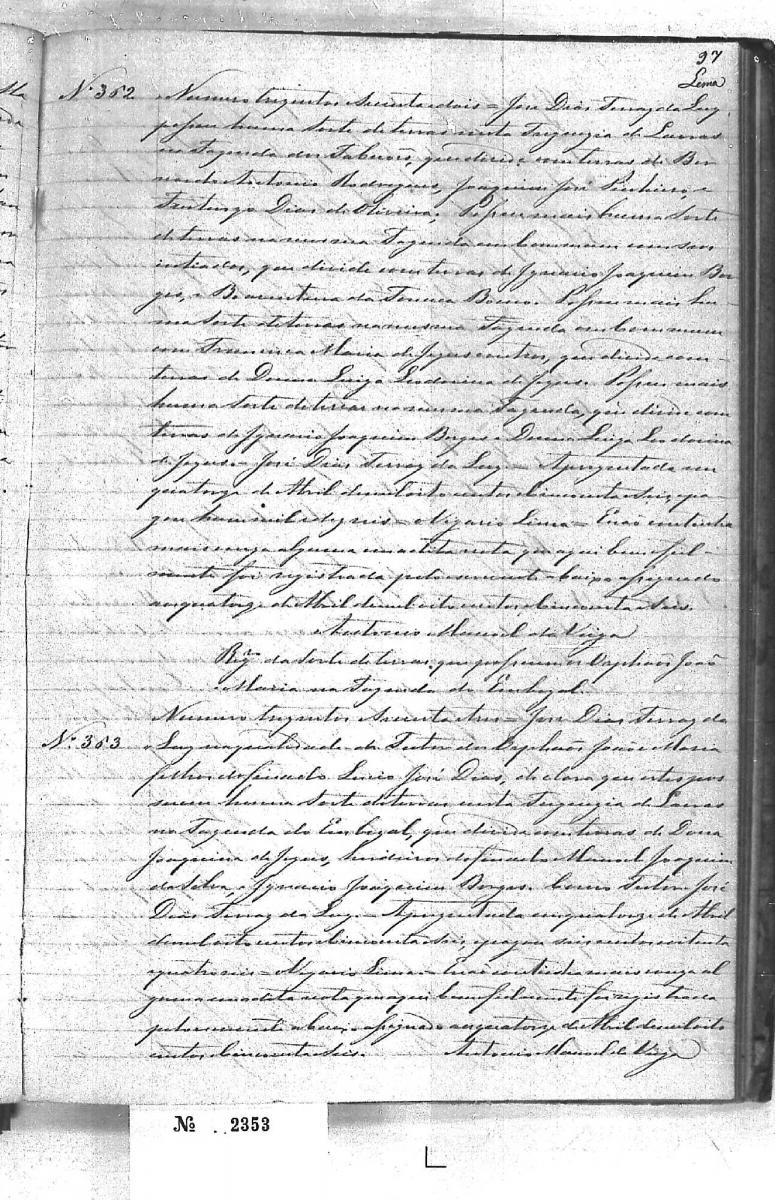 97
Lima
Nº 362 Numero trezentos secenta e dois = José Dias Ferraz da Luz,
possue huma sorte de terras nesta Freguezia de Lavras
na Fazenda dos Taboões, que divide com terras de Ber
nardo Antonio Rodrigues, Joaquim José Pinheiro, e
Dias de Oliveira. Possue mais huma sorte
de terras na mesma Fazenda em commum com seos
que divide com terras de Ignacio Joaquim Bor
ges, e Boaventura da Fonceca Bueno. Possue mais hu
ma sorte de terras na mesma Fazenda em commum
com Francisca Maria de Jezus e outros, que divide com
terras de Donna Luiza Leodorina de Jezus. Possue mais
huma sorte de terras na mesma Fazenda, que divide com
terras de Ignacio Joaquim Borges e Donna Luiza Leodorina
de Jezus = José Dias Ferraz da Luz = Aprezentada em
quatorze de Abril de mil oito centos e cincoenta e seis, e pa
gou hum mil e dez reis = O Vigario Lima = E não continha
mais couza alguma em a dita nota que aqui bem e fiel
mente foi registrada pelo escrevente abaixo assignado
aos quatorze de Abril de mil oito centos e cincoenta e seis.
Antonio Manoel da Veiga
Regº da sorte de terras, que possuem os Orphaõs João
e Maria na Fazenda do Embezal.
Nº 363 Numero trezentos secenta e tres = José Dias Ferraz da
Luz na qualidade de Tutor dos Orphaõs João e Maria
filhos do finado Lucio José Dias, declara que estes pos
suem huma sorte de terras nesta Freguezia de Lavras
na Fazenda do Embezal, que divide com terras de Dona
Joaquina de Jezus, herdeiros do finado Manoel Joaquim
da Silva, e Ignacio Joaquim Borges. Como Tutor José
Dias Ferraz da Luz = Aprezentada em quatorze de Abril
de mil oito centos e cincoenta e seis, e pagou seis centos e oitenta
e quatro reis = O Vigario Lima = E não continha mais couza al
guma em a dita nota que aqui bem e fielmente foi registrada
pelo escrevente abaixo assignado aos quatorze de Abril de mil oito
centos e cincoenta e seis. Antonio Manoel da Veiga
Nº 2353